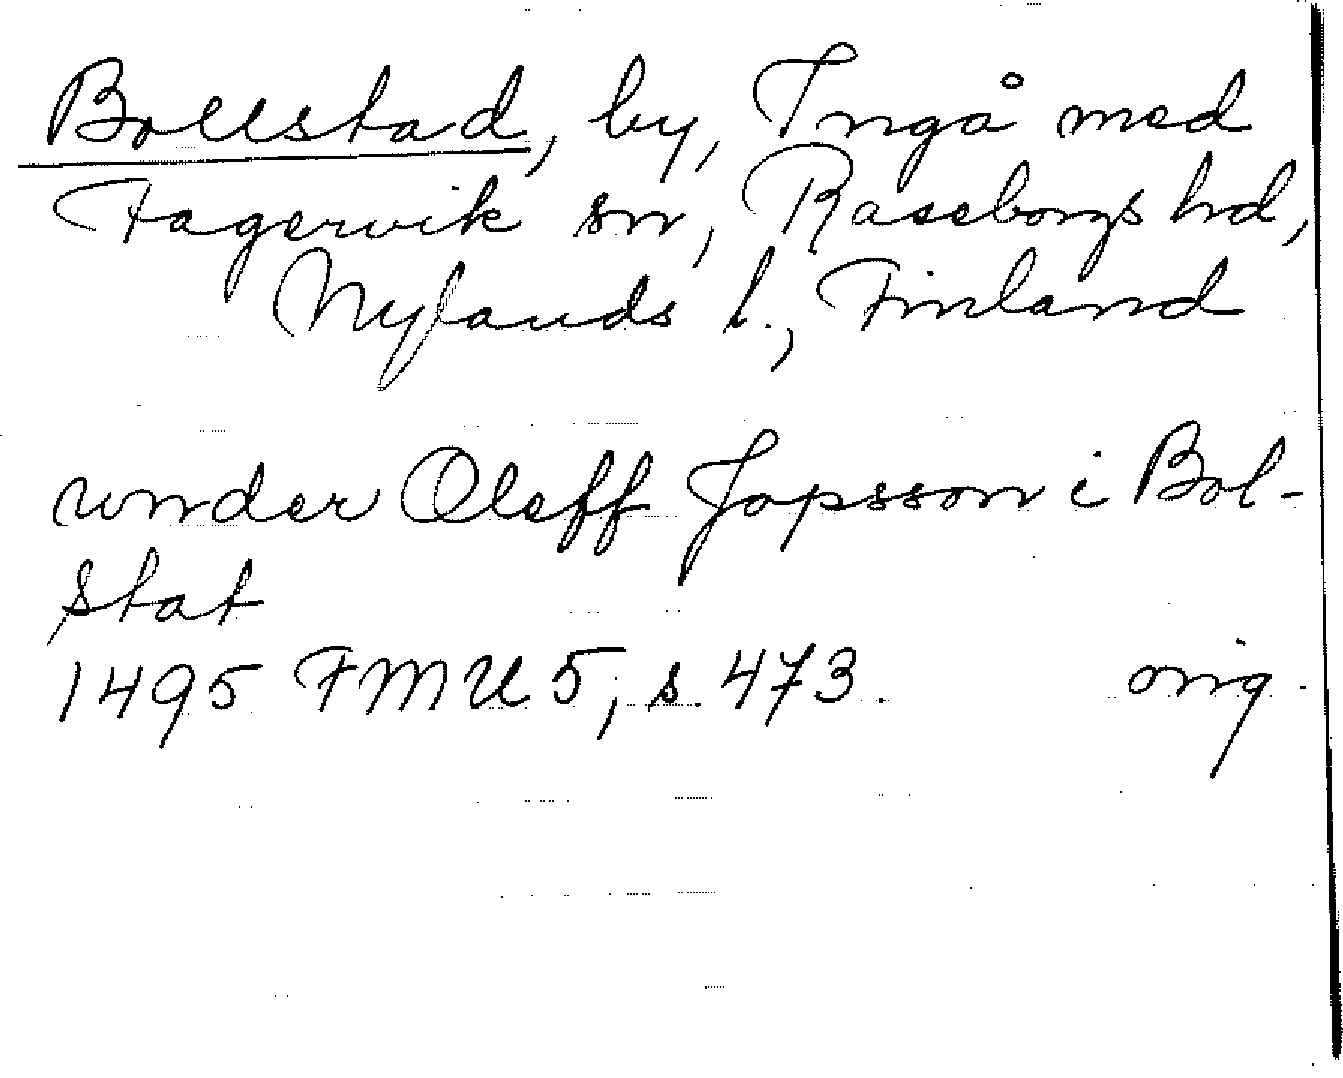 Bollstad, by, Ingå med
Fagervik sn, Raseborgs hd,
Nylands l., Finland
under Oleff Jopsson i Bol-
stat
1495 FMU 5, s. 473. orig.